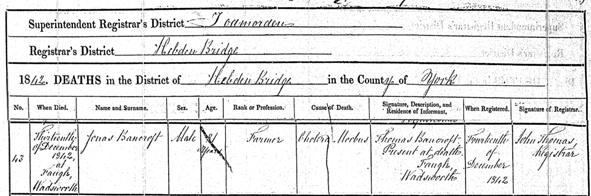 Superintendent Registrar's District Todmorden
Registrar's District Hebden Bridge
1842. DEATHS in the District of Hebden Bridge in the County of York
No. When Died. Name and Surname. Sex. Age. Rank or Profession. Cause of Death. Signature, Description, and Residence of Informant. When Registered. Signature of Registrar.
43 Thirteenth of December 1842, at Faugh, Wadsworth Jonas Bancroft Male years Farmer Cholera Morbus Thomas Bancroft Present at death, Faugh, Wadsworth Fourteenth of December 1842 John Thomas, Registrar